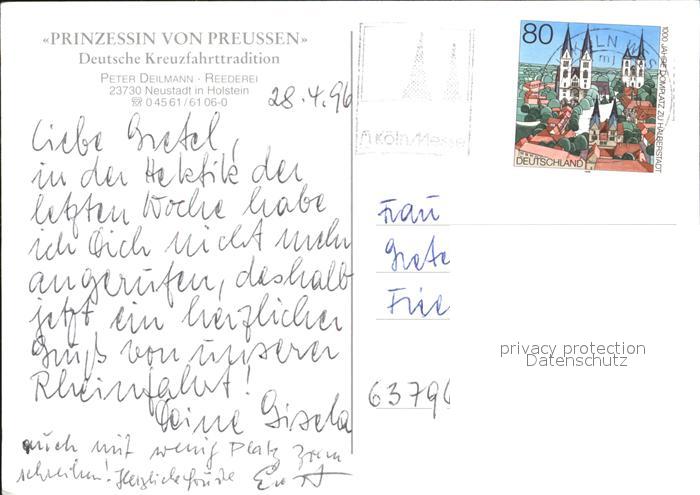 «PRINZESSIN VON PREUSSEN»
Deutsche Kreuzfahrttradition
PETER DEILMANN · REEDEREI
23730 Neustadt in Holstein
☎ 0 45 61 / 61 06-0
28.4.96
Liebe Gretel,
in der Hektik der
letzten Woche habe
ich Dich nicht mehr
angerufen, deshalb
jetzt ein herzlicher
Gruß von unserer
Rheinfahrt!
Deine Gisela
auch mit wenig Platz zum
schreiben! Herzliche Grüße
Köln/Messe
80
1000 JAHRE DOMPLATZ ZU HALBERSTADT
DEUTSCHLAND
Frau
Grete
Frie
63796
privacy protection
Datenschutz